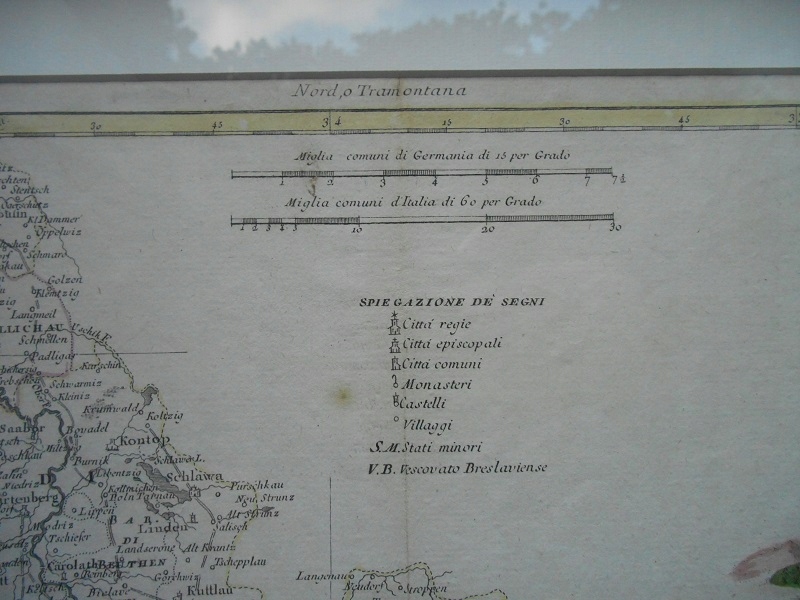 Nord, o Tramontana
30 45 34 15 30 45
Miglia comuni di Germania di 15 per Grado
1 2 3 4 5 6 7
Miglia comuni d'Italia di 60 per Grado
1 2 3 4 5 10 20 30
SPIEGAZIONE DE' SEGNI
Cittá regie
Cittá episcopali
Cittá comuni
Monasteri
Castelli
Villaggi
S.M. Stati minori
V.B. Vescovato Breslaviense
Stentsch
Kl Dammer
Oppelwiz
Schmarö
Golzen
Klemtzig
Langmeil
LLICHAU
Schmöllen
Padligar
Karschin
Schwarmiz
Kleiniz
Grunwald
Koltzig
Saabor
Bovadel
Kontop
Burnik
Schlawe L.
Schlawa
Purschkau
Ngu. Strunz
Alt Strunz
Lippen
BAR.
Linden
DI
Tschiefer
Landserone
Alt Krantz
Carolath BEUTHEN
Tschepplau
Kuttlau
Langenau
Neudorf
Stroppen